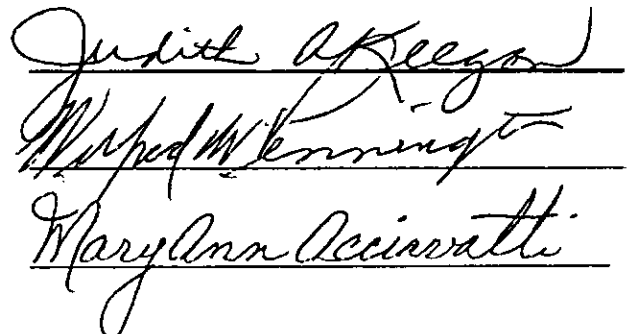 Judith A Keegan
Wilfred W Penningt
Mary Ann Acciavatti